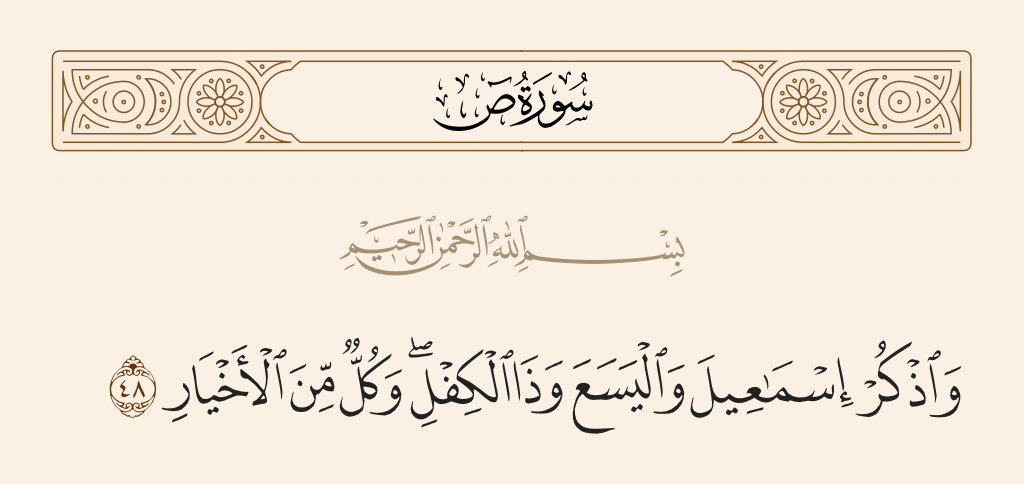 سُورَةُ صٓ
بِسْمِ ٱللَّهِ ٱلرَّحْمَٰنِ ٱلرَّحِيمِ
وَٱذْكُرْ إِسْمَٰعِيلَ وَٱلْيَسَعَ وَذَا ٱلْكِفْلِ ۖ وَكُلٌّ مِّنَ ٱلْأَخْيَارِ ٤٨